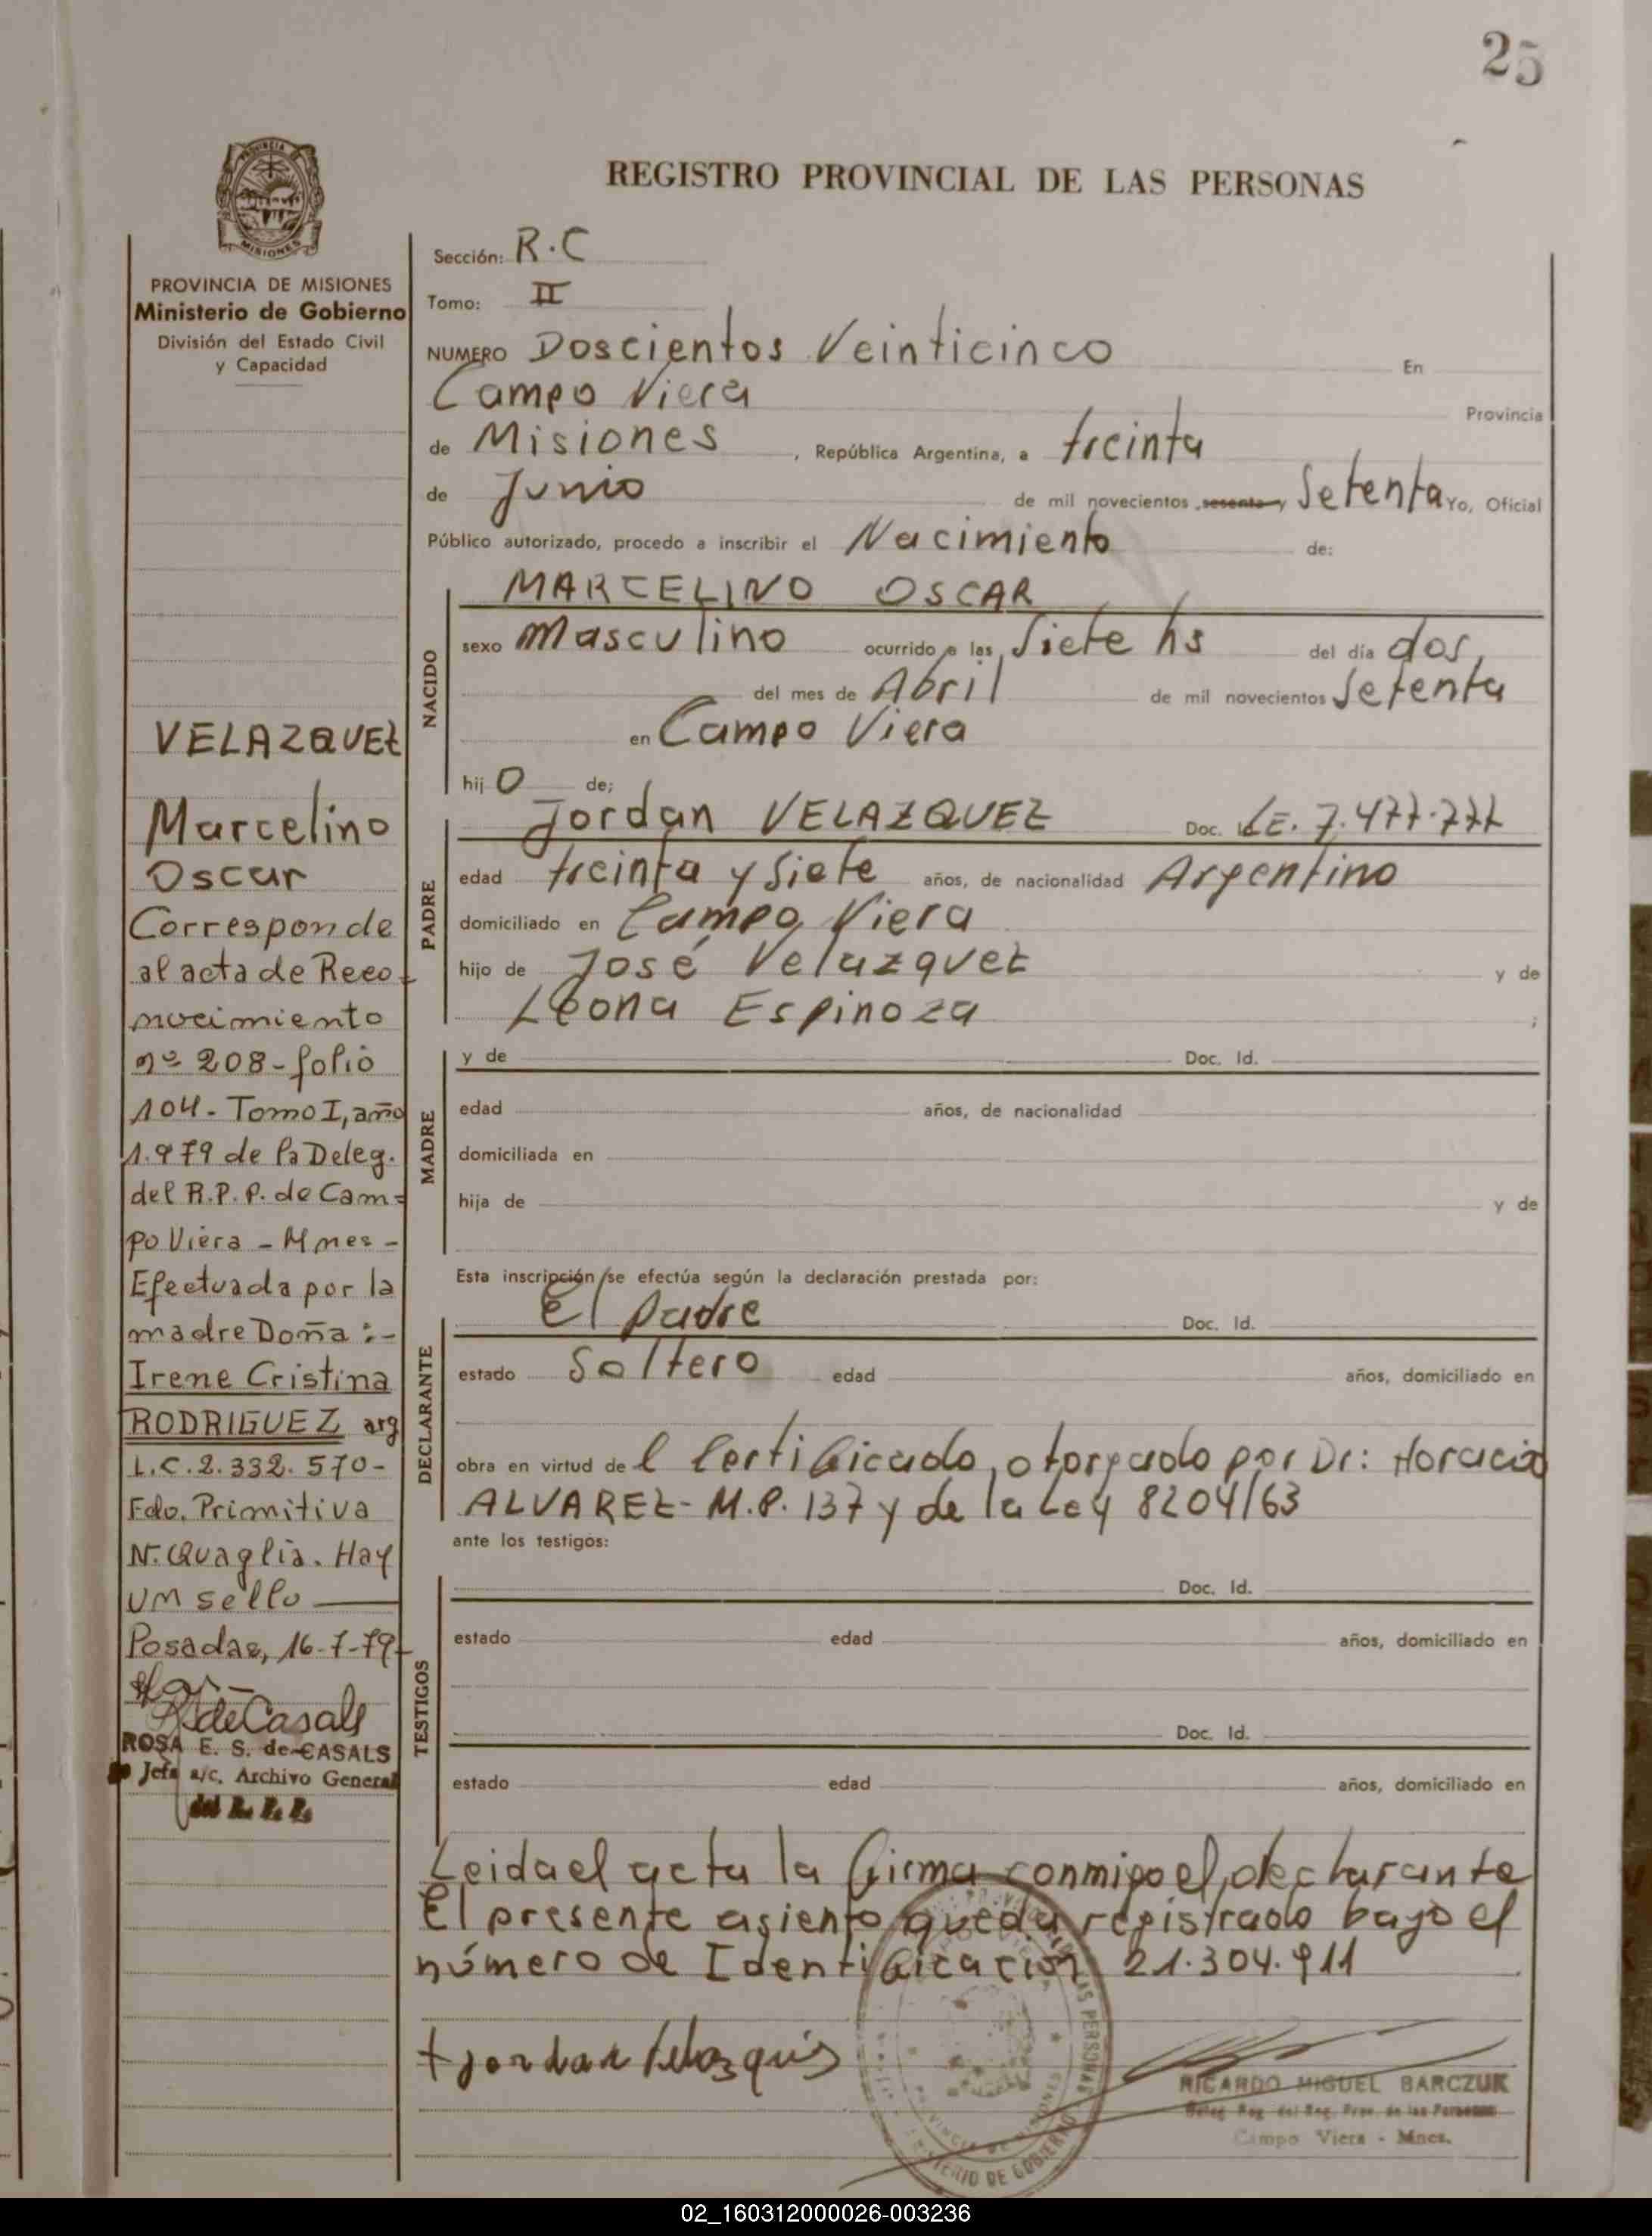 25
REGISTRO PROVINCIAL DE LAS PERSONAS
PROVINCIA
MISIONES
PROVINCIA DE MISIONES
Ministerio de Gobierno
División del Estado Civil
y Capacidad
VELAZQUEZ
Marcelino
Oscar
Corresponde
al acta de Reco-
nocimiento
nº 208- folio
104- Tomo I, año
1.979 de la Deleg.
del R.P.P. de Cam=
po Viera - Mnes -
Efectuada por la
madre Doña :-
Irene Cristina
RODRIGUEZ arg
L.C. 2.332.570-
Fdo. Primitiva
N. Quaglia. Hay
un sello
Posadas, 16-7-79-
deCasals
ROSA E. S. de CASALS
Jefa a/c. Archivo General
del R. P. P.
Sección: R.C
Tomo: II
NUMERO Doscientos Veinticinco En
Campo Viera Provincia
de Misiones , República Argentina, a treinta
de Junio de mil novecientos sesenta y Setenta Yo, Oficial
Público autorizado, procedo a inscribir el Nacimiento de:
NACIDO
MARCELINO OSCAR
sexo Masculino ocurrido a las Siete hs del día dos,
del mes de Abril de mil novecientos Setenta
en Campo Viera
hij O de;
PADRE
Jordan VELAZQUEZ Doc. LE. 7.477.777
edad treinta y Siete años, de nacionalidad Argentino
domiciliado en Campo Viera
hijo de José Velazquez y de
Leona Espinoza ;
MADRE
y de Doc. Id.
edad años, de nacionalidad
domiciliada en
hija de y de
Esta inscripción se efectúa según la declaración prestada por:
DECLARANTE
El padre Doc. Id.
estado Soltero edad años, domiciliado en
obra en virtud de l Certificado, otorgado por Dr: Horacio
ALVAREZ- M.P. 137 y de la Ley 8204/63
ante los testigos:
TESTIGOS
Doc. Id.
estado edad años, domiciliado en
Doc. Id.
estado edad años, domiciliado en
Leida el acta la firma conmigo el declarante
El presente asiento queda registrado bajo el
número de Identificación 21.304.911
RICARDO MIGUEL BARCZUK
Campo Viera - Mnes.
02_160312000026-003236